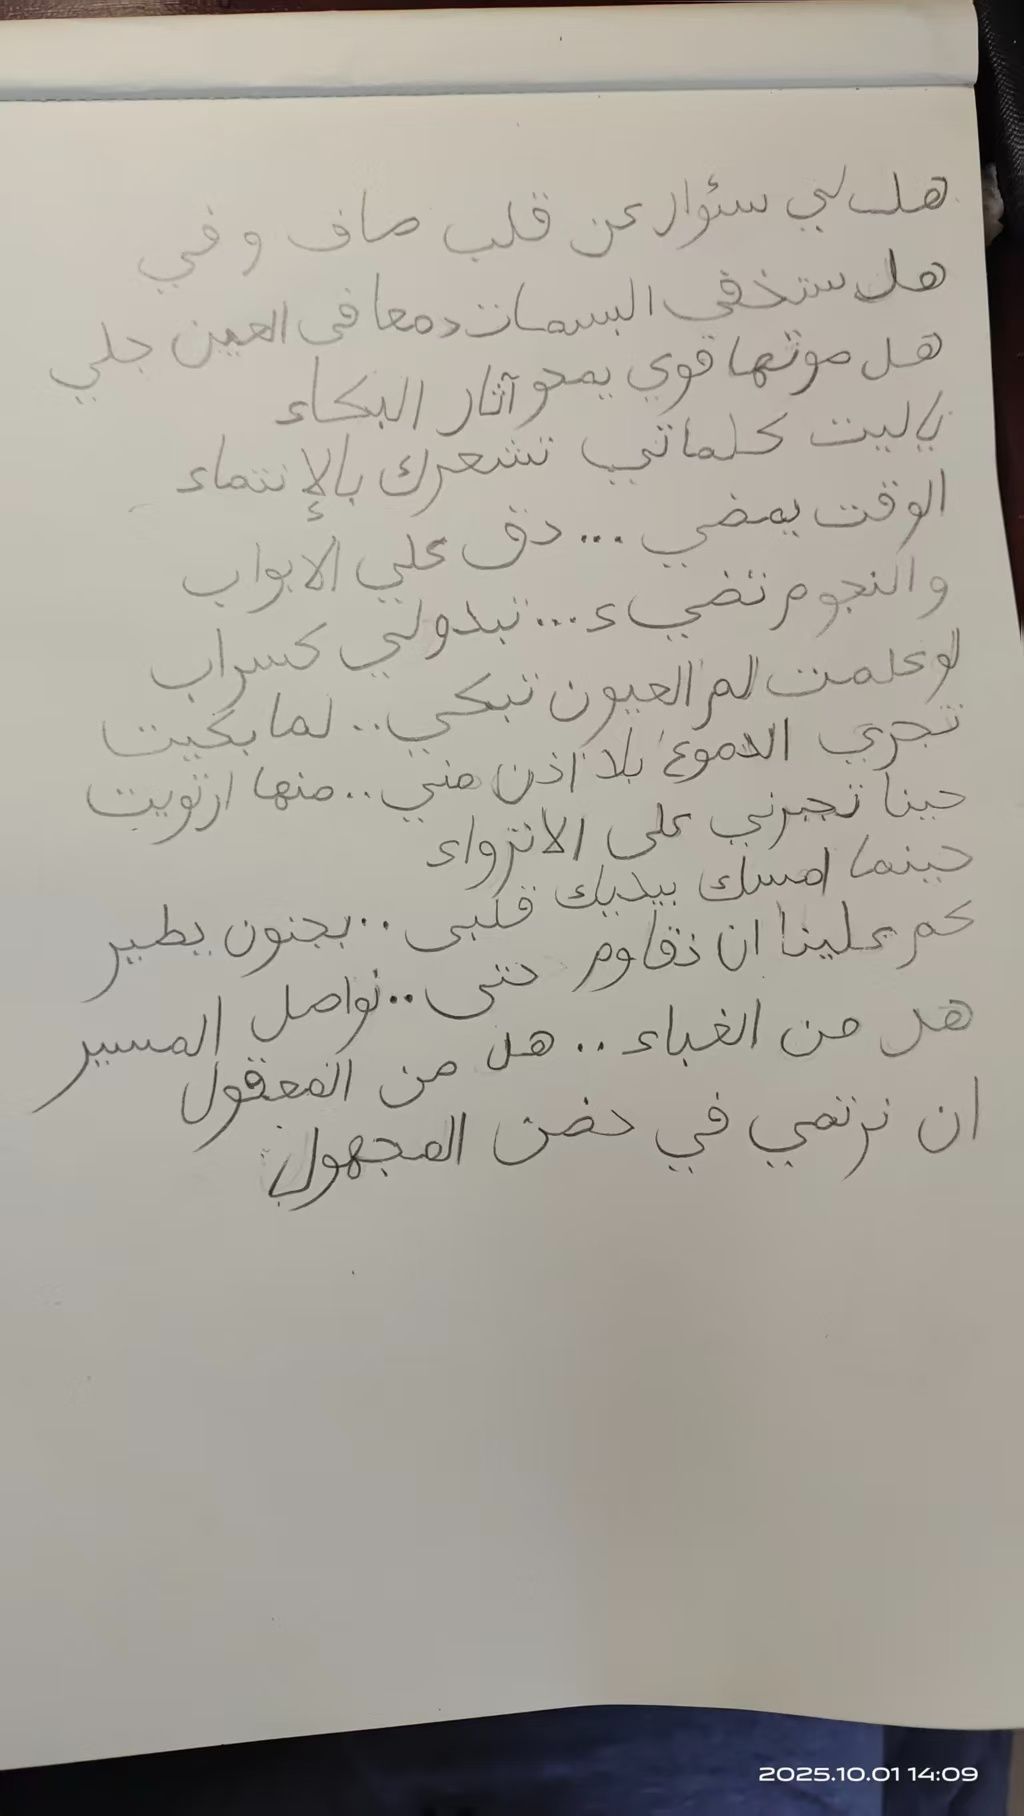 هل لي سئوال عن قلب صاف وفي
هل ستخفى البسمات دمعا فى العين جلي
هل صوتها قوي يمحو آثار البكاء
ياليت كلماتي تشعرك بالإنتماء
الوقت يمضي ... دق علي الابواب
والنجوم تضيء ... تبدولي كسراب
لوعلمت لم العيون تبكي .. لما بكيت
تجري الدموع بلا اذن مني .. منها ارتويت
حينا تجبرني على الانزواء
حينما امسك بيديك قلبى .. بجنون يطير
كم علينا ان نقاوم حتى .. نواصل المسير
هل من الغباء .. هل من المعقول
ان نرتمي في حضن المجهول
2025.10.01 14:09